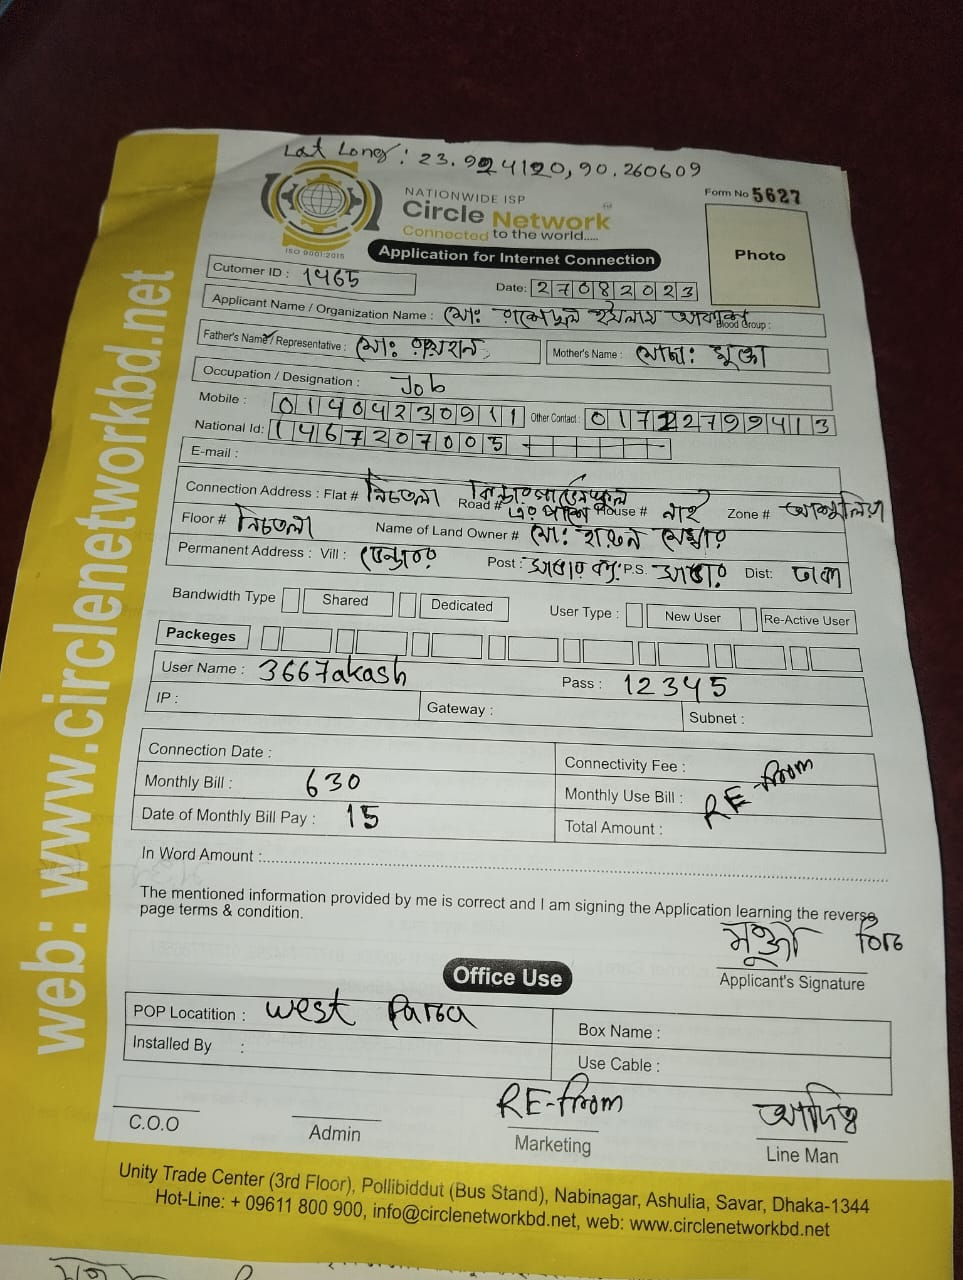 Lat Long: 23.924120,90.260609
NATIONWIDE ISP
Form No 5627
Circle Network
Connected to the world.....
ISO 9001:2015
Application for Internet Connection
Photo
Cutomer ID : 1465
Date: 27082023
Applicant Name / Organization Name : মোঃ ইসলাম আকাশ Blood Group :
Father's Name / Representative : মোঃ Mother's Name : মোছাঃ মুক্তা
Occupation / Designation : Job
Mobile : 01404230911 Other Contact : 01722799413
National Id: 1467207005
E-mail :
Connection Address : Flat # নিচতলা Road # এর পাশে House # নাই Zone # আশুলিয়া
Floor # নিচতলা Name of Land Owner # মোঃ মেম্বার
Permanent Address : Vill : Post : P.S. সাভার Dist: ঢাকা
Bandwidth Type Shared Dedicated User Type : New User Re-Active User
Packeges
User Name : 3667akash Pass : 12345
IP : Gateway : Subnet :
Connection Date : Connectivity Fee :
Monthly Bill : 630 Monthly Use Bill : RE-from
Date of Monthly Bill Pay : 15 Total Amount :
In Word Amount :
The mentioned information provided by me is correct and I am signing the Application learning the reverse
page terms & condition.
মুক্তা
Applicant's Signature
Office Use
POP Locatition : west Para Box Name :
Installed By : Use Cable :
C.O.O Admin RE-from Marketing Line Man
Unity Trade Center (3rd Floor), Pollibiddut (Bus Stand), Nabinagar, Ashulia, Savar, Dhaka-1344
Hot-Line: + 09611 800 900, info@circlenetworkbd.net, web: www.circlenetworkbd.net
web: www.circlenetworkbd.net